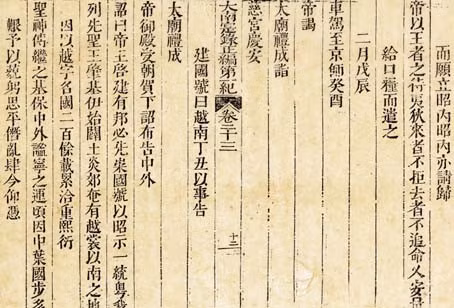 而願立昭內昭內亦請歸
帝以王者之待夷狄來者不拒去者不追命乂安
給口糧而遣之
二月戊辰
車駕至京師癸酉
帝謁
太廟禮成詣
慈宮慶安
大南寔錄正編第一紀 卷二十三 十二
建國號曰越南丁丑以事告
太廟禮成
帝御殿受朝賀下詔布告中外
詔曰帝王啓建有邦必先崇國號以昭示一統粤我
列先聖王肇基伊始闢土炎郊奄有越裳以南之地
因以越字名國二百餘載累洽重熙衍
聖神傳繼之基保中外謐寧之運頃因中葉國步多
艱予以躬思平僭亂肆今仰憑